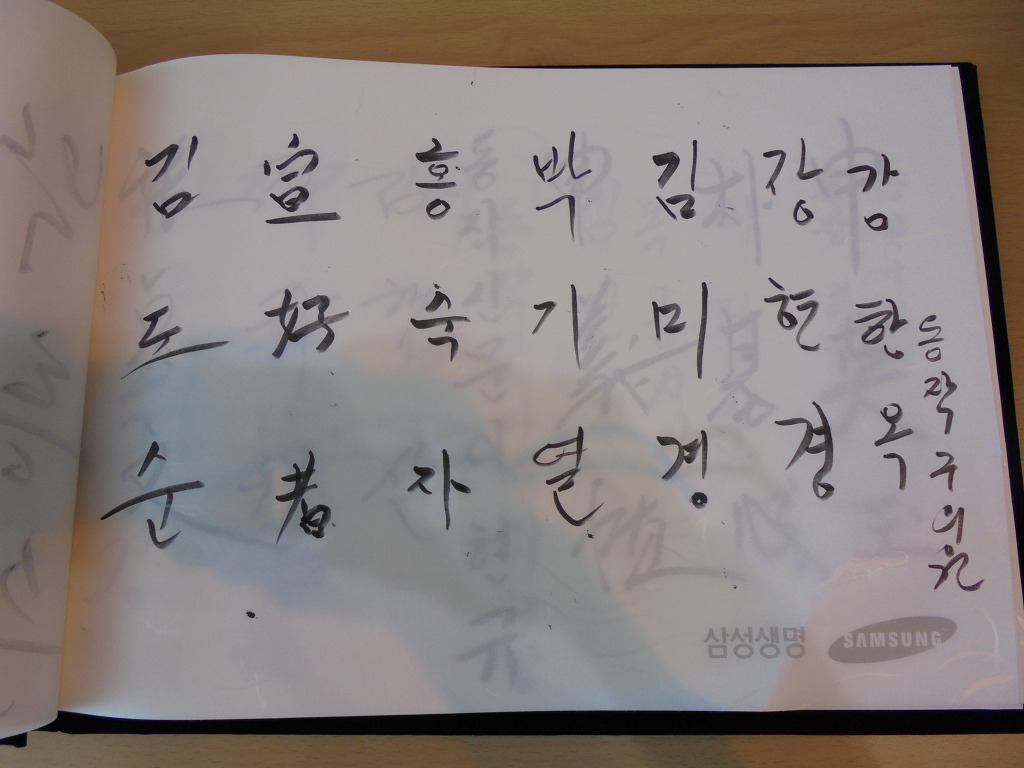 강한옥
동작구의원
장현경
김미경
박기열
홍숙자
宣好者
김도순
삼성생명
SAMSUNG